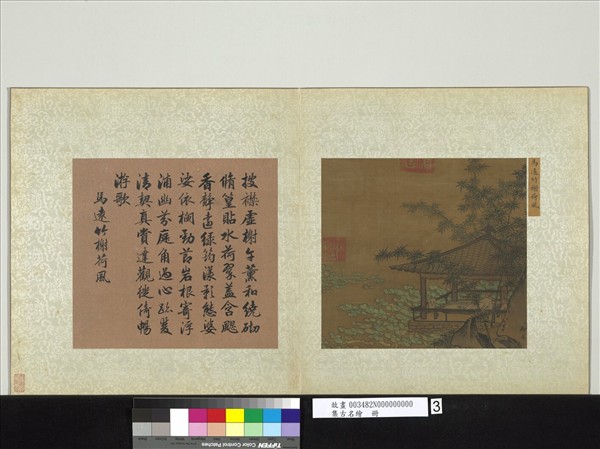 馬遠竹榭荷風
披襟虛榭午薰和繞砌
脩篁貼水荷翠蓋含飔
香靜遠綠筠漾影態婆
娑依欄勁節岩根寄浮
浦幽芬庭角過心
清契真賞達觀徙倚暢
游歌
馬遠竹榭荷風
故畫 003482N000000000
集古名繪 冊
3
TIFFEN Color Control Patches